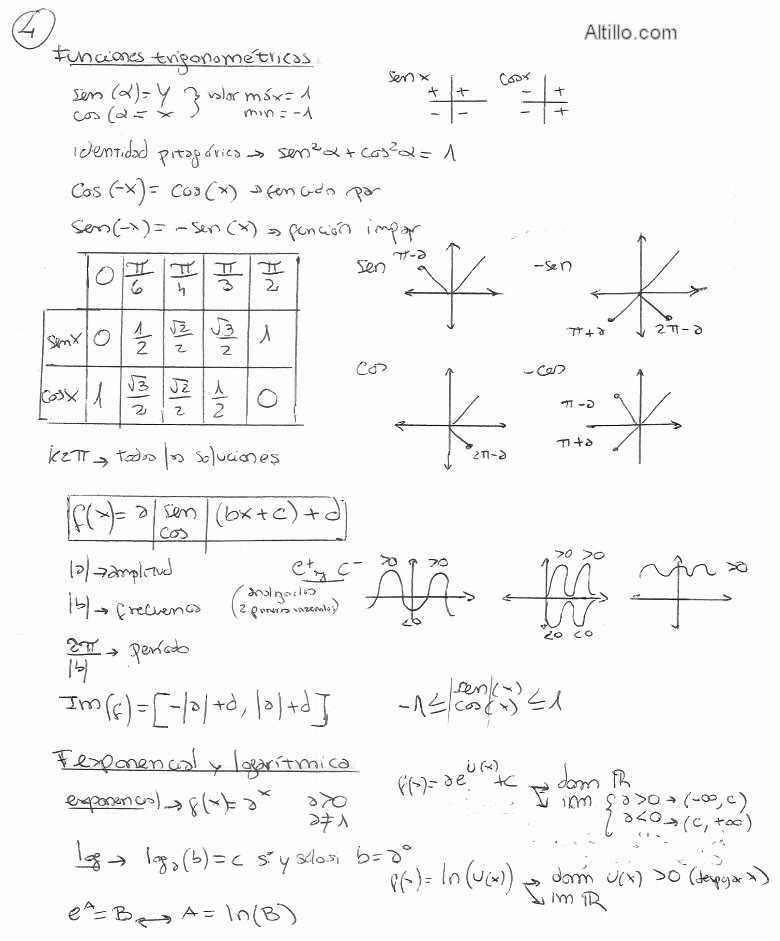 4
Altillo.com
Funciones trigonométricas
sen(α)=y } valor máx=1
cos(α=x } min=-1
sen x + + - -
cos x - + - +
identidad pitagórica → sen²α + cos²α = 1
Cos(-x) = Cos(x) → función par
Sen(-x) = -Sen(x) → función impar
0 π/6 π/4 π/3 π/2
senx 0 1/2 √2/2 √3/2 1
cosx 1 √3/2 √2/2 1/2 0
sen π-a
-sen π+a 2π-a
cos 2π-a
-cos π-a π+a
k2π → todas las soluciones
f(x) = a |sen cos| (bx+c)+d
|a| → amplitud
C+ y C-
(analizarlos
2 primeros intervalos)
>0 >0 <0
>0 >0 <0 <0
>0
|b| → frecuencia
2π/|b| → período
Im(f) = [-|a|+d, |a|+d]
-1 ≤ |sen cos| (x) (x) ≤ 1
F exponencial y logarítmica
exponencial → f(x) = a^x a>0 a≠1
f(x) = ae^u(x) + c → dom ℝ
→ im { a>0 → (-∞,c)
a<0 → (c,+∞)
log → log_a(b) = c si y solo si b = a^c
f(x) = ln(u(x)) → dom u(x) > 0 (despejar x)
→ im ℝ
e^A = B ↔ A = ln(B)